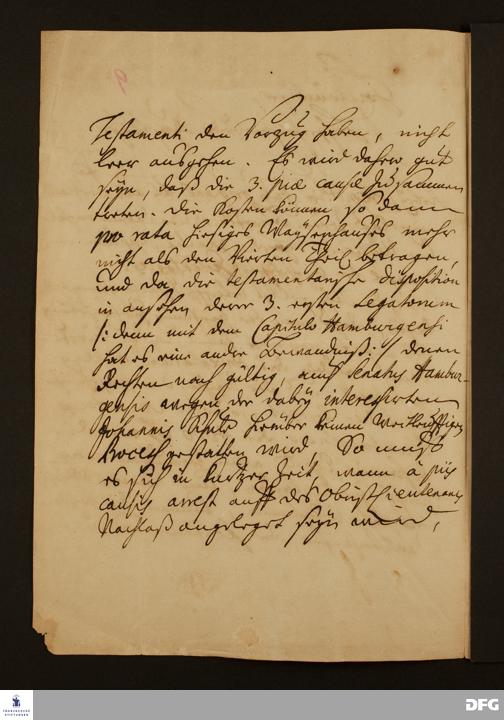 Testamenti den Vorzug haben, nicht
leer ausgehen. Es wird daher gut
seyn, daß die 3. piæ causæ zusammen
treten. Die Kosten können so dann
pro rata hiesiges Waysenhauses mehr
nicht als den Vierten Theil betragen,
und da die testamentarische disposition
in ansehen derer 3. ersten Legatorum
/: denn mit dem Capitulo Hamburgensi
hat es eine andre Bewandniß :/ denen
Rechten nach gültig, auch Senatus Hambur-
gensis wegen der dabey interessirten
Johannis Schule hierüber keinen Weitläufftigen
Process gestatten wird, So muß
es sich in kurtzer Zeit, wann à piis
causis arrest auff des Obristlieutenants
Nachlaß angeleget seyn wird,
FRANCKESCHE STIFTUNGEN
DFG